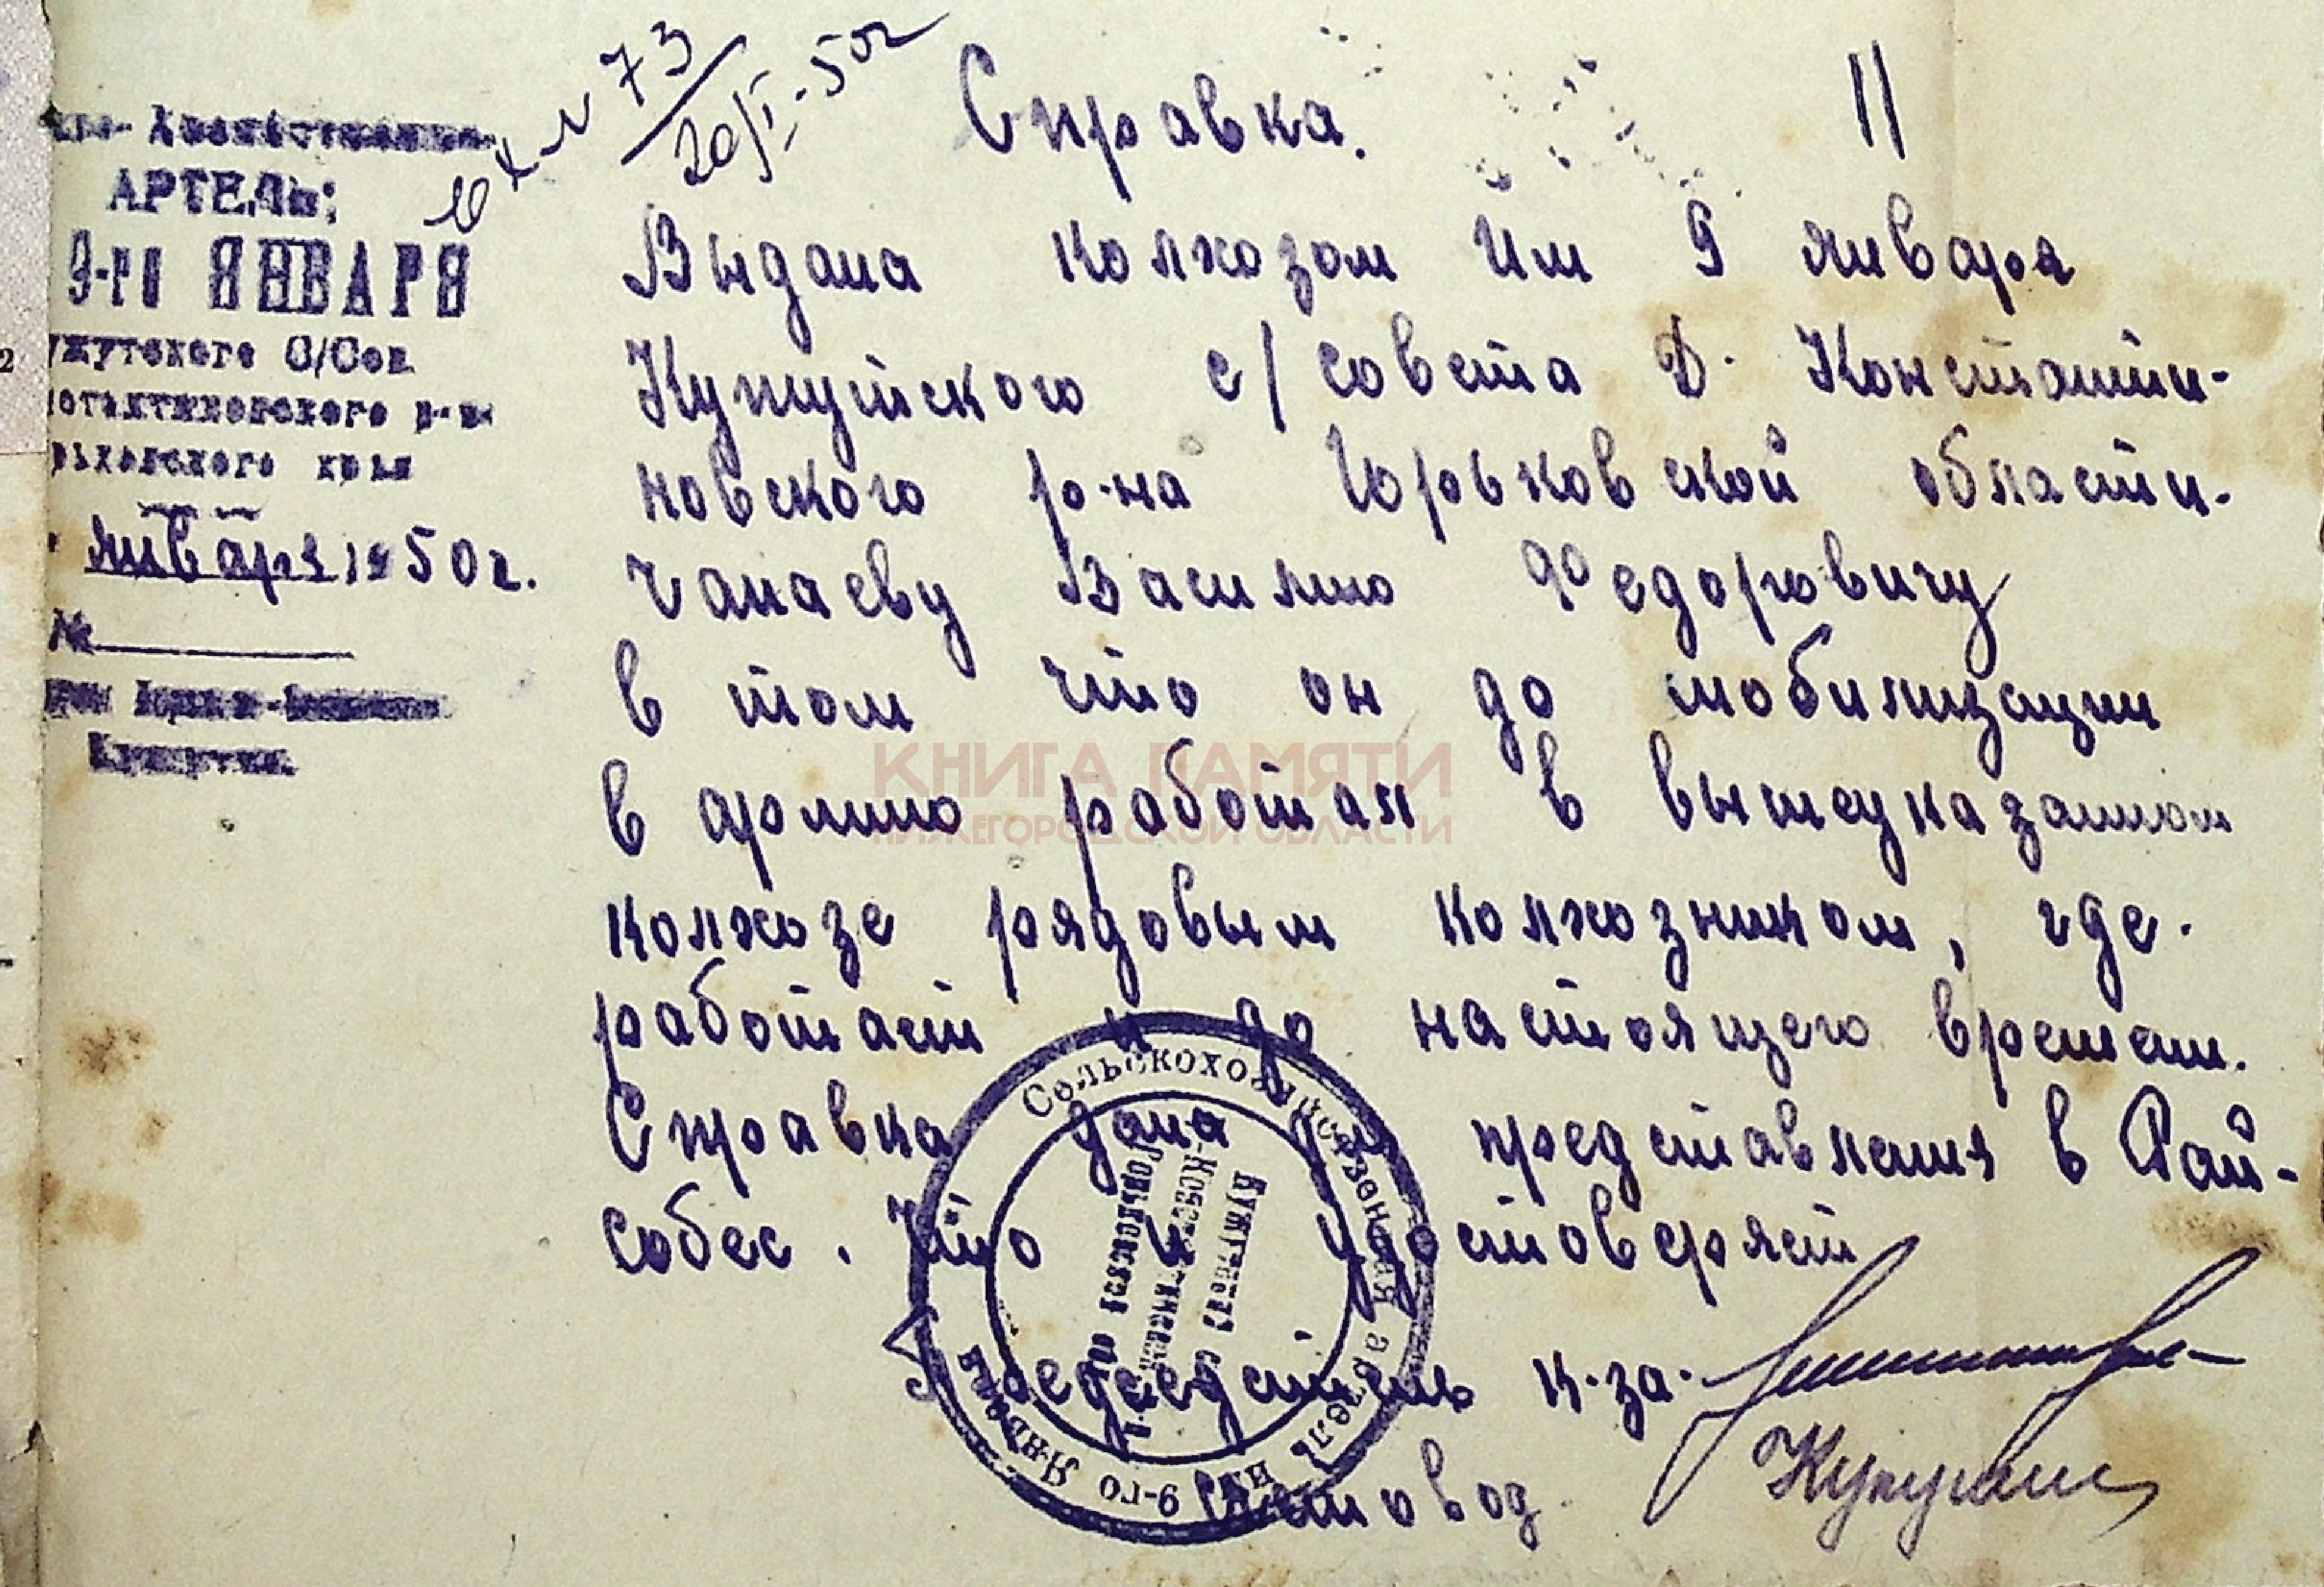 N 73
20/I-50г
Справка.
11
АРТЕЛЬ:
9-го ЯНВАРЯ
ужутского С/Сов
р-на
края
января 1950г.
№
Выдана колхозом им 9 января
Кужутского с/совета Д. Константи-
новского р-на Горьковской области.
Чанаеву Василию Федоровичу
в том что он до мобилизации
в армию работал в вышеуказанном
колхозе рядовым колхозником, где.
работает и до настоящего времени.
Справка дана для представления в Рай-
собес. Что и удостоверяет
Председатель к-за.
Счетовод.
Сельскохозяйственная артель им 9-го Января
Кужутского с
Горьковской обл
КНИГА ПАМЯТИ
НИЖЕГОРОДСКОЙ ОБЛАСТИ
2